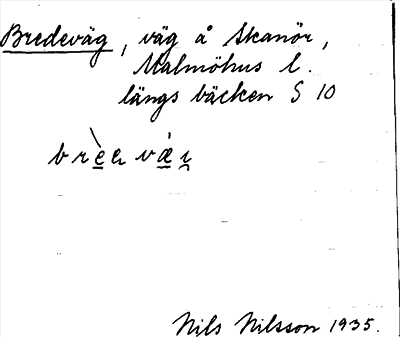 Bredeväg, väg å Skanör,
Malmöhus l.
längs bäcken S 10
Nils Nilsson 1935.